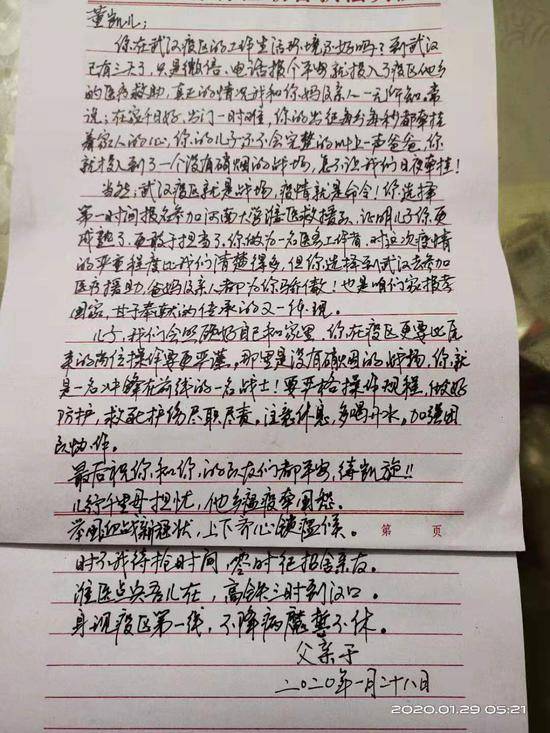 董凯儿：
你在武汉疫区的工作生活环境还好吗？到武汉
已有三天了，只是微信、电话报个平安就投入了疫区他乡
的医疗救助，真正的情况我和你妈及亲人一无所知。常
说：在家千日好，出门一时难，你的出征每分每秒都牵挂
着家人的心，你的儿子还不会完整的叫上一声爸爸，你
就投入到了一个没有硝烟的战场，怎不让我们日夜牵挂！
当然：武汉疫区就是战场，疫情就是命令！你选择
第一时间报名参加河南大学淮医救援队，证明儿子你更
成熟了，更敢于担当了，你做为一名医务工作者，对这次疫情
的严重程度比我们清楚得多，但你选择到武汉去参加
医疗援助，爸妈及亲人都为你骄傲！也是咱们家报孝
国家，甘于奉献的传承的又一体现。
儿子，我们会照顾好自己和家里，你在疫区更要比原
来的岗位操作要更严谨。那里是没有硝烟的战场，你就
是一名冲锋在前线的一名战士！要严格操作规程，做好
防护，救死护伤尽职尽责。注意休息，多喝开水。加强团
队协作。
最后祝你和你的队友们都平安，待凯旋！！
儿行千里母担忧，他乡瘟疫牵国怨。
举国迎战新冠状，上下齐心镇瘟候。
时不我待抢时间，零时征招舍亲友。
淮医点兵吾儿在，高铁三时到汉口。
身现疫区第一线，不降病魔誓不休。
父亲于
二〇二〇年一月二十八日
第 页
2020.01.29 05:21